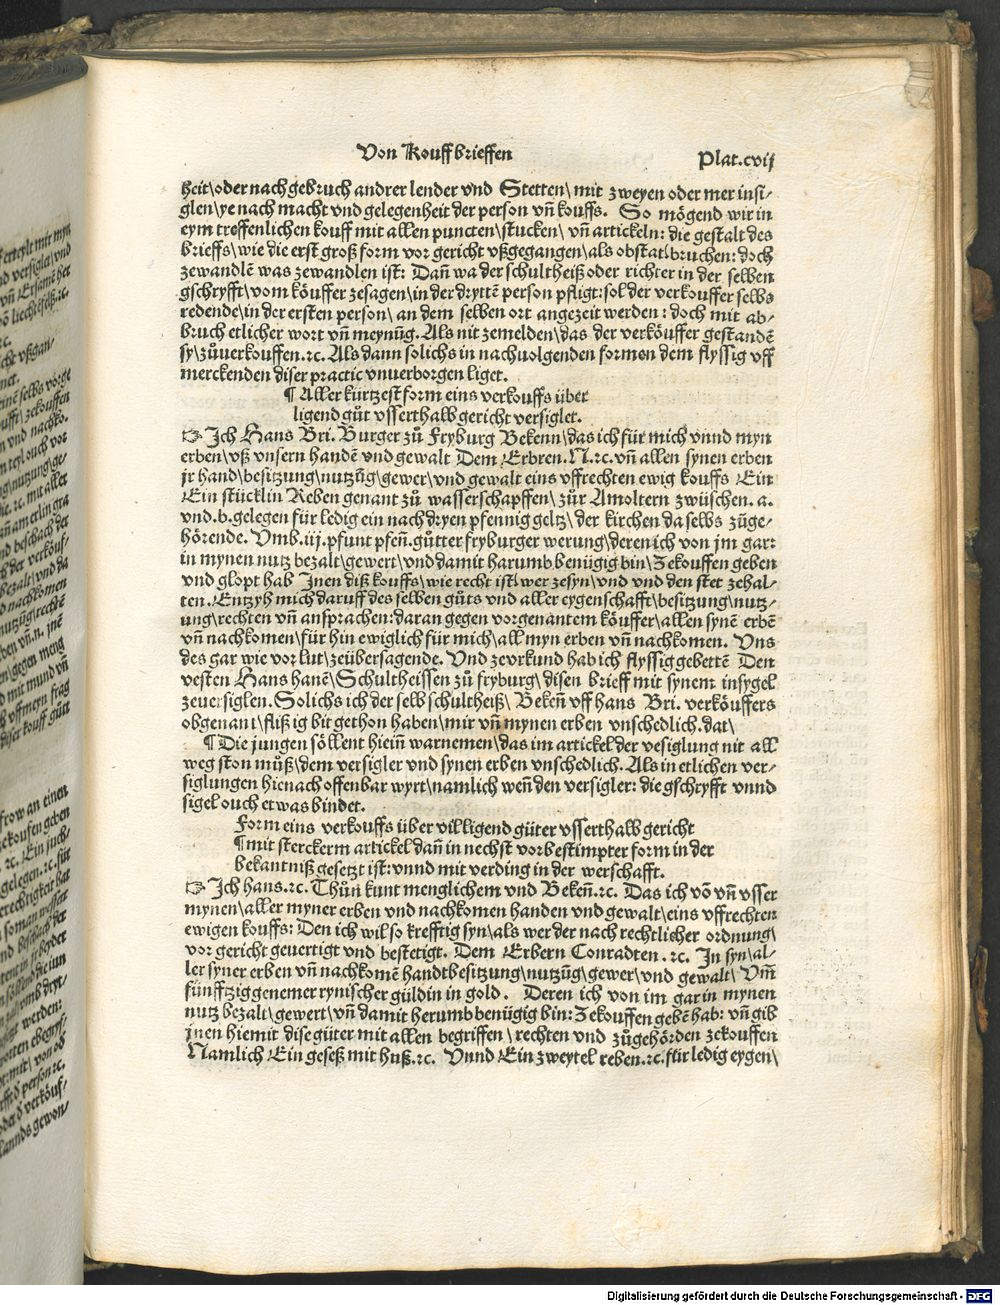 Von Kouffbrieffen
Plat.cvij
heit\oder nach gebruch andrer lender vnd Stetten\mit zweyen oder mer insi/
glen\ye nach macht vnd gelegenheit der person vn̄ kouffs. So mögend wir in
eym treffenlichen kouff mit allen puncten\stucken\ vn̄ artickeln: die gestalt des
brieffs\wie die erst groß form vor gericht vßgegangen\als obstat\bruchen: doch
zewandlē was zewandlen ist: Dañ wa der schultheiß oder richter in der selben
gschryfft\vom köuffer zesagen\in der dryttē person pfligt:sol der verkouffer selbs
redende\in der ersten person\ an dem selben ort angezeit werden: doch mit ab/
bruch etlicher wort vn̄ meynūg. Als nit zemelden\das der verköuffer gestandē
sy\zůuerkouffen.ꝛc. Als dann solichs in nachuolgenden formen dem flyssig vff
merckenden diser practic vnuerborgen liget.
¶ Aller kürtzest form eins verkouffs über
ligend gůt vsserthalb gericht versiglet.
☞ Jch Hans Bri. Burger zů Fryburg Bekenn\das ich für mich vnnd myn
erben\vß vnsern handē vnd gewalt Dem Erbren.N.ꝛc. vn̄ allen synen erben
jr hand\besitzung\nutzūg\gewer\vnd gewalt eins vffrechten ewig kouffs Ein
Ein stücklin Reben genant zů wasserschapffen\ zůr Amoltern zwüschen. a.
vnd.b.gelegen für ledig ein nach dryen pfennig geltz\ der kirchen da selbs zůge/
hörende. Vmb.iij.pfunt pfeñ.gůtter fryburger werung\deren ich von jm gar:
in mynen nutz bezalt\gewert\vnd damit harumb benügig bin\Zekouffen geben
vnd glopt hab Jnen diß kouffs\wie recht ist\wer zesyn\vnd vnd den stet zehal/
ten. Entzyh mich daruff des selben gůts vnd aller eygenschafft\besitzung\nutz/
ung\rechten vn̄ ansprachen: daran gegen vorgenantem köuffer\allen synē erbē
vn̄ nachkomen\für hin ewiglich für mich\all myn erben vn̄ nachkomen. Vns
des gar wie vor lut\zeübersagende. Vnd zevrkund hab ich flyssig gebettē Den
vesten Hans hanē\Schultheissen zů fryburg\disen brieff mit synem insygel
zeuersiglen. Solichs ich der selb schultheiß\ Bekeñ vff hans Bri. verköuffers
obgenant\flissig bit gethon haben\mir vn̄ mynen erben vnschedlich.dat\
¶ Die jungen söllent hieiñ warnemen\das im artickel der vesiglung nit all
weg ston můß\dem versigler vnd synen erben vnschedlich. Als in etlichen ver/
siglungen hienach offenbar wyrt\namlich weñ den versigler: die gschryfft vnnd
sigel ouch etwas bindet.
Form eins verkouffs über villigend güter vsserthalb gericht
¶ mit sterckerm artickel dañ in nechst vorbestimpter form in der
bekantniß gesetzt ist: vnnd mit verding in der werschafft.
☞ Jch hans.ꝛc. Thůn kunt menglichem vnd Bekeñ.ꝛc. Das ich vō vn̄ vsser
mynen\aller myner erben vnd nachkomen handen vnd gewalt\eins vffrechten
ewigen kouffs: Den ich wil so krefftig syn\als wer der nach rechtlicher ordnung\
vor gericht geuertigt vnd bestetigt. Dem Erbern Conradten .ꝛc. Jn syn\al/
ler syner erben vn̄ nachkomē handtbesitzung\nutzūg\gewer\vnd gewalt\ Vm̄
fünfftzig genemer rynischer güldin in gold. Deren ich von im gar in mynen
nutz bezalt\gewert\vn̄ damit herumb benügig bin: Zekouffen gebē hab: vn̄ gib
jnen hiemit dise güter mit allen begriffen\ rechten vnd zůgehörden zekouffen
Namlich Ein geseß mit huß.ꝛc. Vnnd Ein zweytel reben.ꝛc.für ledig eygen\
Digitalisierung gefördert durch die Deutsche Forschungsgemeinschaft - DFG